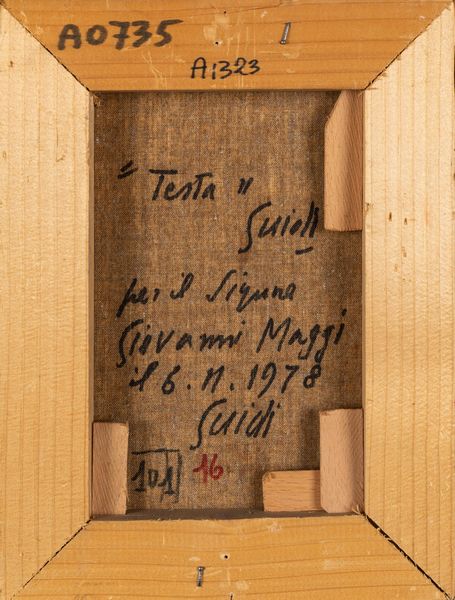 A0735
A1323
"Testa"
Guidi
per il Signor
Giovanni Maggi
il 6.11.1978
Guidi
101 16